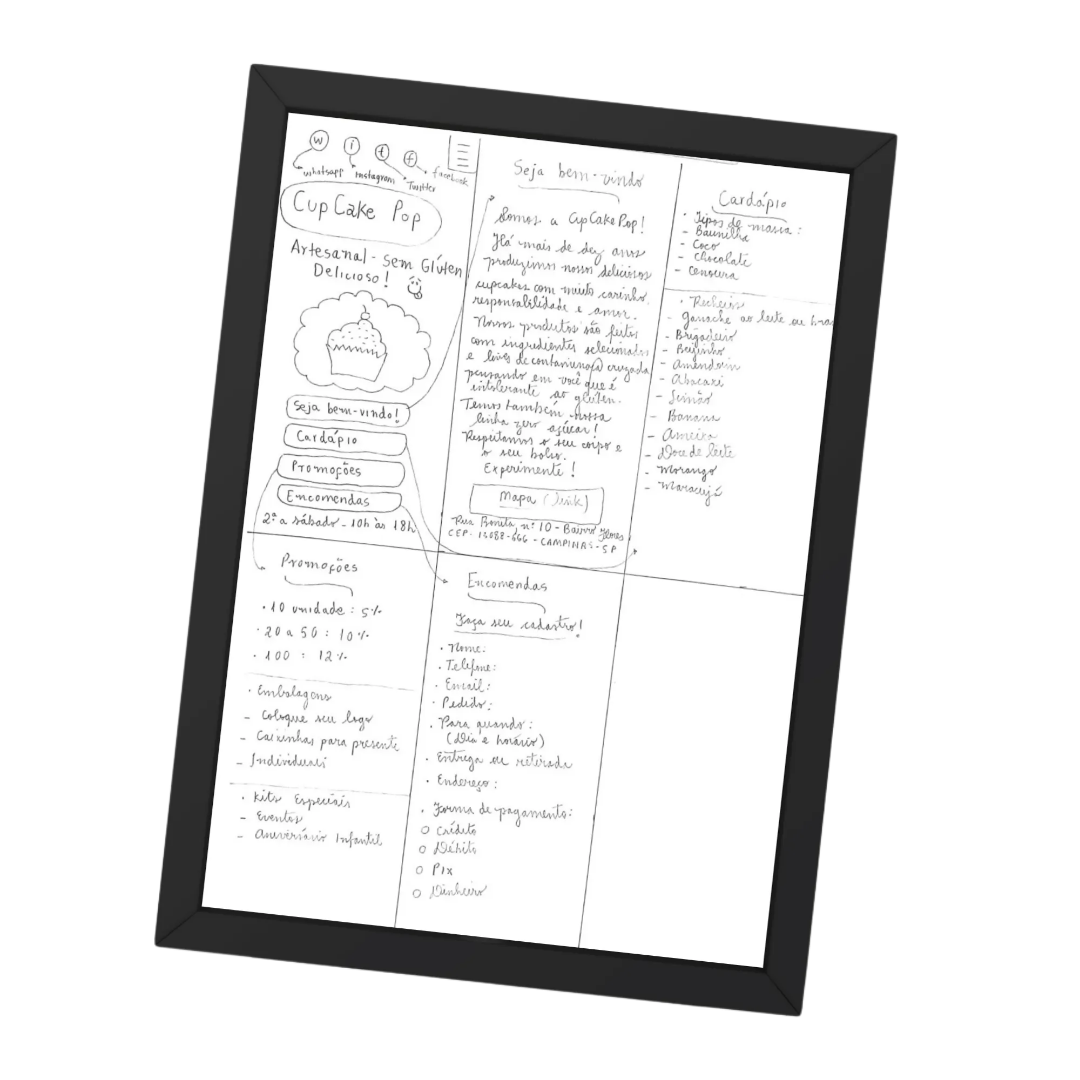 W i t f
whatsapp instagram Twitter facebook
CupCake Pop
Artesanal - sem Glúten
Delicioso!
Seja bem-vindo!
Cardápio
Promoções
Encomendas
2ª a sábado - 10h às 18h
Seja bem-vindo
Somos a CupCakePop!
Há mais de dez anos
produzimos nossos deliciosos
cupcakes com muito carinho,
responsabilidade e amor.
Nossos produtos são feitos
com ingredientes selecionados
e livres de contaminação cruzada
pensando em você que é
intolerante ao glúten.
Temos também nossa
linha zero açúcar!
Respeitamos o seu corpo e
o seu bolso.
Experimente!
Mapa (link)
Rua Bonita, nº 10 - Bairro Flores
CEP: 13088-666 - CAMPINAS - SP
Cardápio
• Tipos de massa:
- Baunilha
- Coco
- Chocolate
- Cenoura
• Recheios
- Ganache ao leite ou
- Brigadeiro
- Beijinho
- Amendoim
- Abacaxi
- Limão
- Banana
- Ameixa
- Doce de leite
- Morango
- Maracujá
Promoções
• 10 unidade: 5%
• 20 a 50: 10%
• 100: 12%
• Embalagens
- Coloque seu logo
- Caixinhas para presente
- Individuais
• Kits Especiais
- Eventos
- Aniversário Infantil
Encomendas
Faça seu cadastro!
• Nome:
• Telefone:
• Email:
• Pedido:
• Para quando:
(Dia e horário)
• Entrega ou retirada
• Endereço:
• Forma de pagamento:
○ Crédito
○ Débito
○ Pix
○ Dinheiro